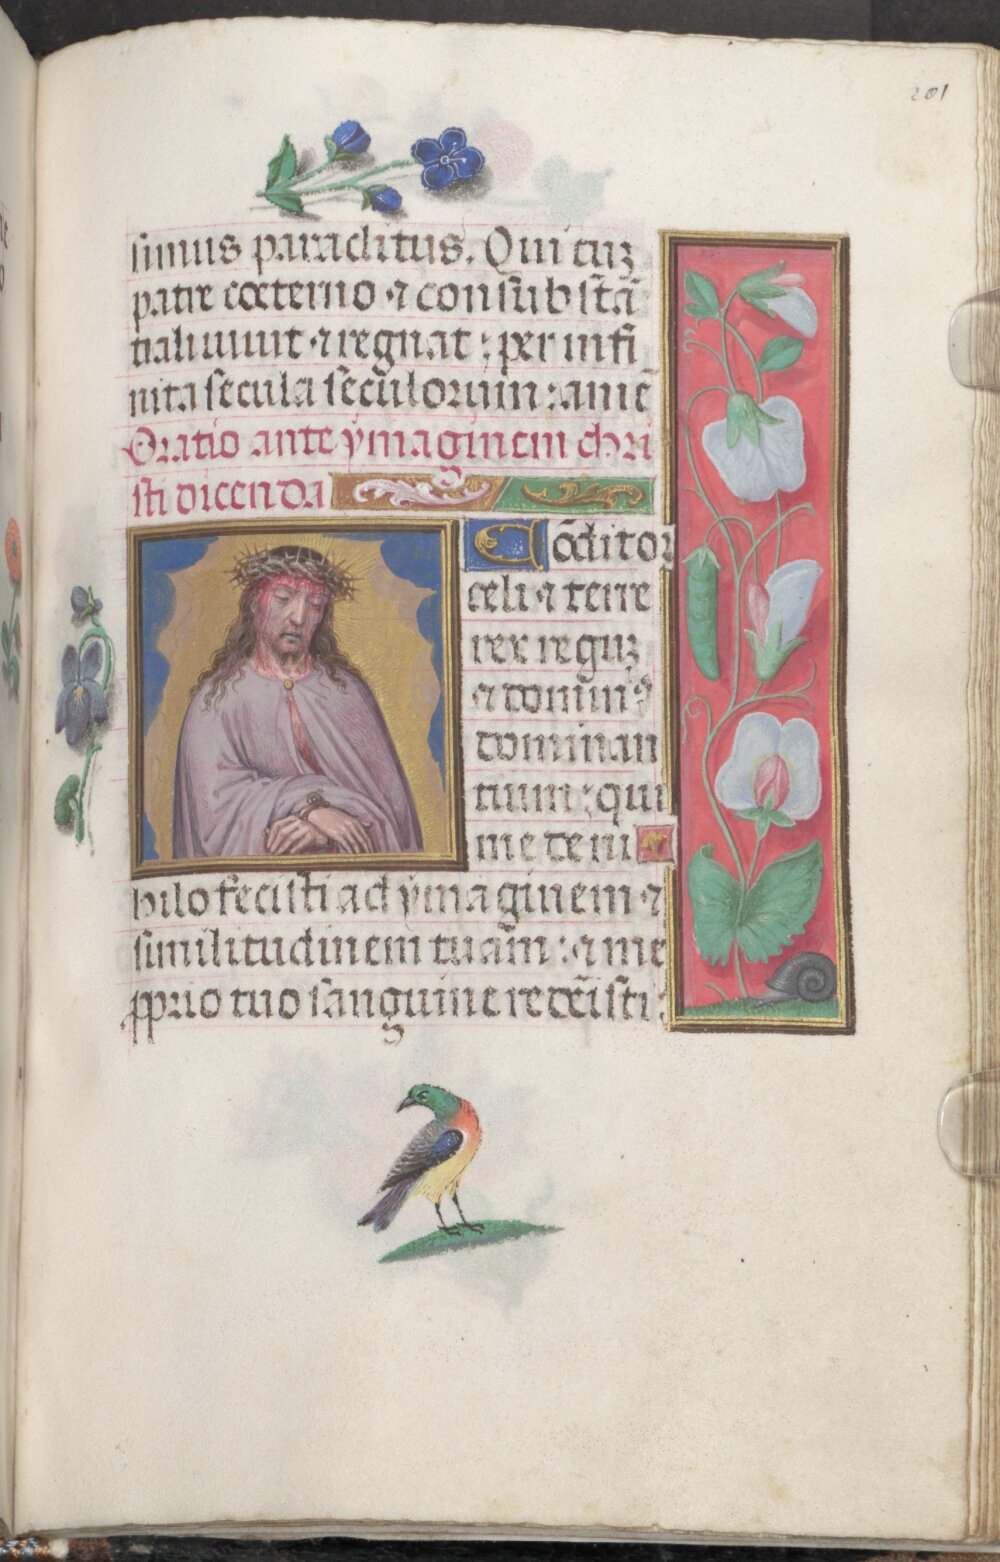 201
simus paraclitus. Qui cuꝫ
patre coeterno ⁊ consubstā
tiali uiuit ⁊ regnat : per infi
nita secula seculorum : amē
Oratio ante ymaginem chri
sti dicenda
Cōditor
celi ⁊ terre
rex reguꝫ
⁊ dominꝰ
dominan
tium : qui
me de ni
hilo fecisti ad ymaginem ⁊
similitudinem tuam : ⁊ me
ꝓprio tuo sanguine redēisti :